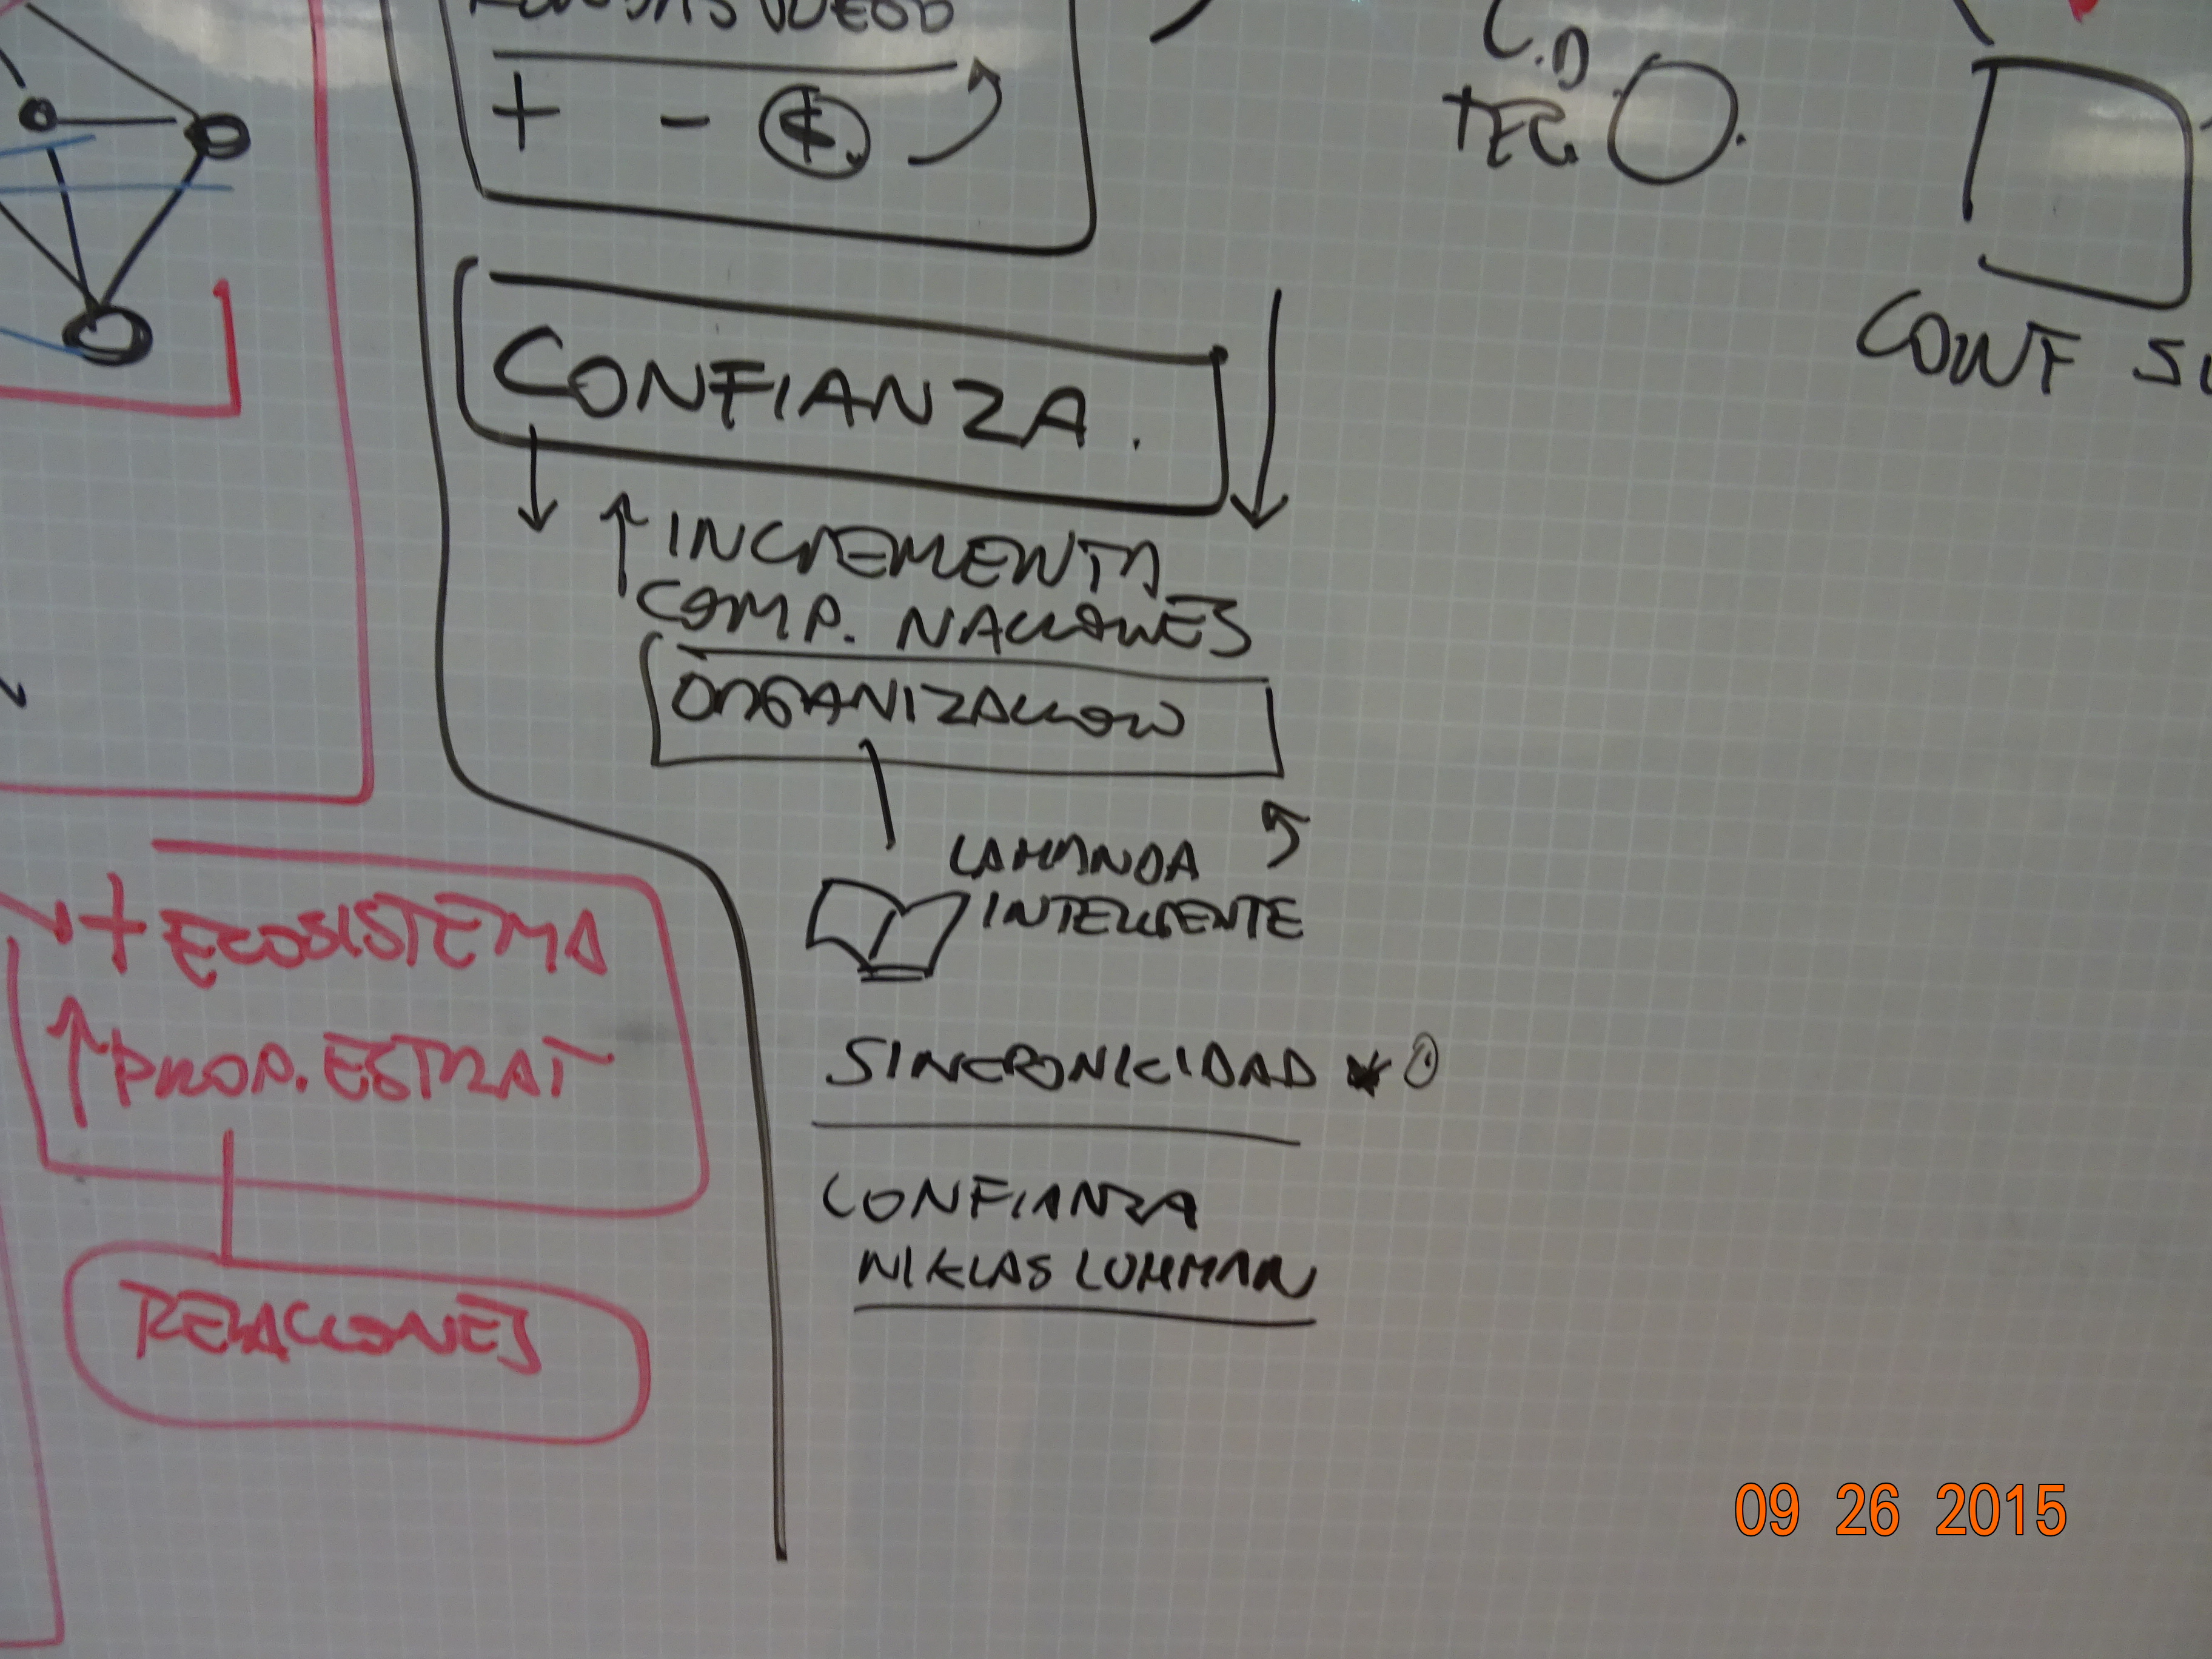 + - $
C.D
TEC.
CONF
CONFIANZA.
↓ ↑ INCREMENTA
COMP. NACIONES
ORGANIZACION
LA MANDA
INTELIGENTE
SINCRONICIDAD
CONFIANZA
NIKLAS LUHMAN
+ ECOSISTEMA
↑ PROP. ESTRAT
RELACIONES
09 26 2015